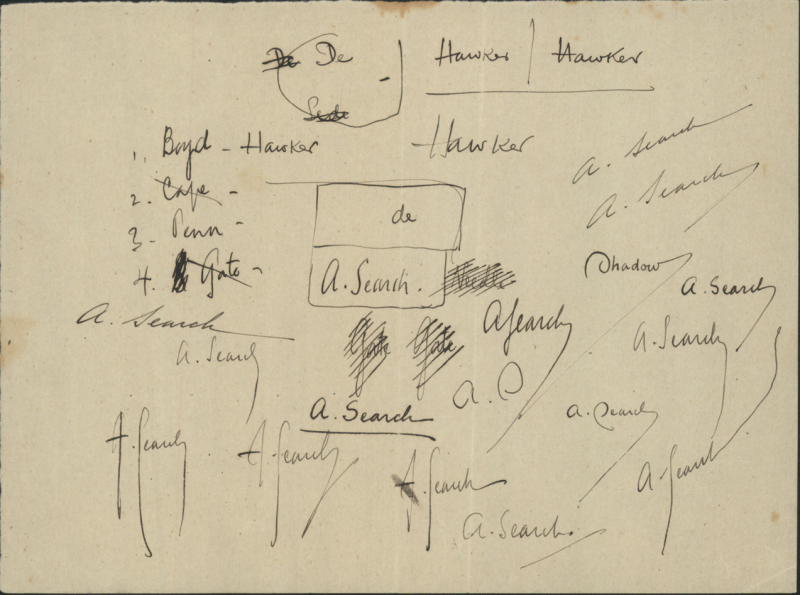 De De Hawker | Hawker
1. Boyd - Hawker Hawker
2. Cape -
3. Penn -
4. Gate -
A. Search
A. Search
de
A. Search.
Shadow
A. Search
A. Search
A. Search
A. Search
A. Search
Gate Gate
A. Search
A. S
A. Search
A. Search
A. Search
A. Search
A. Search
A. Search
A. Search.